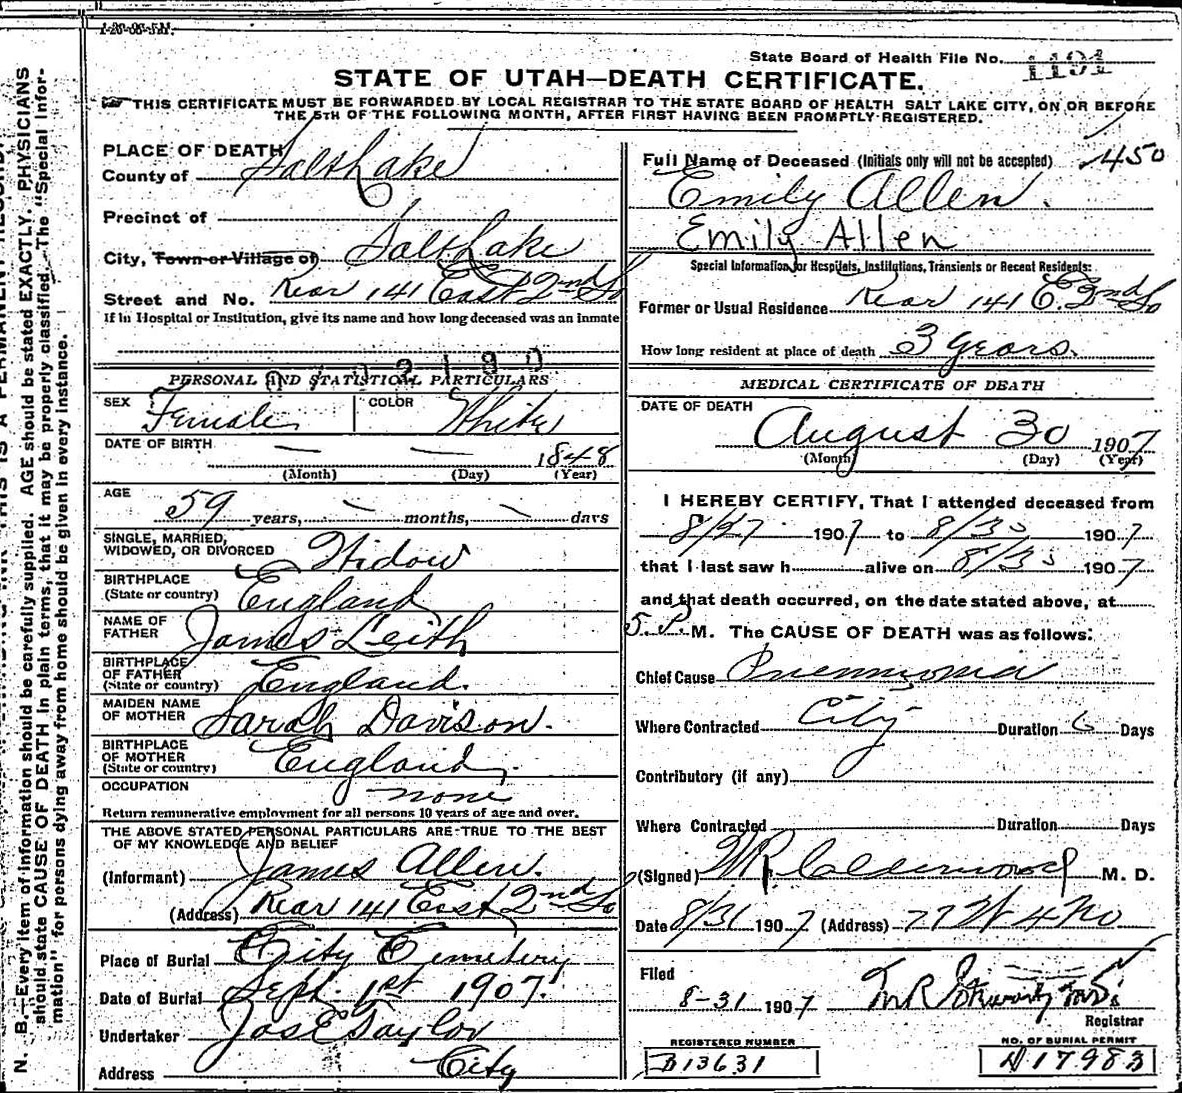 State Board of Health File No. 1191
STATE OF UTAH—DEATH CERTIFICATE.
THIS CERTIFICATE MUST BE FORWARDED BY LOCAL REGISTRAR TO THE STATE BOARD OF HEALTH SALT LAKE CITY, ON OR BEFORE
THE 5TH OF THE FOLLOWING MONTH, AFTER FIRST HAVING BEEN PROMPTLY REGISTERED.
PLACE OF DEATH
County of Salt Lake
Precinct of
City, Town or Village of Salt Lake
Street and No. Rear 141 East 2nd So
If in Hospital or Institution, give its name and how long deceased was an inmate
PERSONAL AND STATISTICAL PARTICULARS
SEX Female COLOR White
DATE OF BIRTH — — 1848
(Month) (Day) (Year)
AGE 59 years, — months, — days
SINGLE, MARRIED,
WIDOWED, OR DIVORCED Widow
BIRTHPLACE
(State or country) England
NAME OF
FATHER James Leith
BIRTHPLACE
OF FATHER
(State or country) England.
MAIDEN NAME
OF MOTHER Sarah Davison.
BIRTHPLACE
OF MOTHER
(State or country) England.
OCCUPATION none
Return remunerative employment for all persons 10 years of age and over.
THE ABOVE STATED PERSONAL PARTICULARS ARE TRUE TO THE BEST
OF MY KNOWLEDGE AND BELIEF
(Informant) James Allen.
(Address) Rear 141 East 2nd So
Place of Burial City Cemetery
Date of Burial Sept. 1st 1907.
Undertaker Jos E Taylor
Address City
450
Full Name of Deceased (Initials only will not be accepted)
Emily Allen.
Emily Allen
Special Information for Hospitals, Institutions, Transients or Recent Residents:
Former or Usual Residence Rear 141 E. 2nd So
How long resident at place of death 3 years.
MEDICAL CERTIFICATE OF DEATH
DATE OF DEATH
August 30 1907
(Month) (Day) (Year)
I HEREBY CERTIFY, That I attended deceased from
8/27 1907 to 8/30 1907
that I last saw h alive on 8/30 1907
and that death occurred, on the date stated above, at
5. P. M. The CAUSE OF DEATH was as follows:
Chief Cause Pneumonia
Where Contracted City Duration 6 Days
Contributory (if any)
Where Contracted Duration Days
(Signed) W R Calderwood M. D.
Date 8/31 1907 (Address) 77 W 4 No
Filed
8-31 1907
Registrar
REGISTERED NUMBER
B13631
NO. OF BURIAL PERMIT
17983
N. B.—Every item of information should be carefully supplied. AGE should be stated EXACTLY. PHYSICIANS
should state CAUSE OF DEATH in plain terms, that it may be properly classified. The "Special Infor-
mation" for persons dying away from home should be given in every instance.